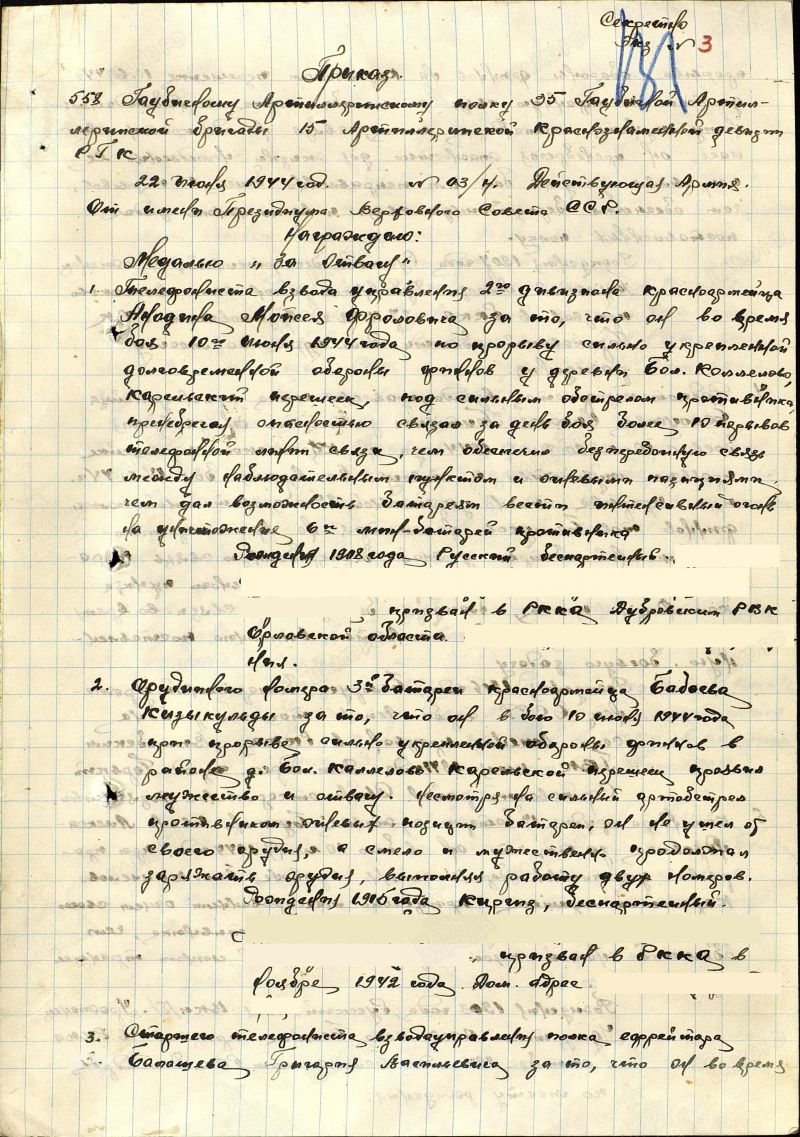 Секретно
Экз № 3
Приказ.
558 Гаубичному Артиллерийскому полку 95 Гаубичной Артил-
лерийской бригады 15 Артиллерийской Краснознаменной дивизии
Р.Г.К.
22 июня 1944 год. № 03/н. Действующая Армия.
От имени Президиума Верховного Совета СССР.
Награждаю:
Медалью „За Отвагу"
1. Телефониста взвода управления 2го дивизиона красноармейца
Моисея Фроловича за то, что он во время
боя 10го июня 1944 года по прорыву сильно укрепленной
долговременной обороны финнов у деревни Бол. Каллелово,
Карельский перешеек, под сильным обстрелом противника,
пренебрегая опасностью связал за день боя более 10 порывов
телефонной линии связи, чем обеспечил бесперебойную связь
между наблюдательным пунктом и огневыми позициями,
чем дал возможность батареям вести интенсивный огонь
на уничтожение 6и минбатарей противника
Рождения 1908 года Русский беспартийный.
призван в РККА Дубровским РВК
Орловской области.
2. Орудийного номера 3й батареи красноармейца Бабаева
Кизыкульды за то, что он в бою 10 июня 1944 года
при прорыве сильно укрепленной обороны финнов в
районе д. Бол. Каллелово Карельской перешеек проявил
мужество и отвагу. Несмотря на сильный артобстрел
противником огневых позиций батареи, он не ушел от
своего орудия, а смело и мужественно продолжал
заряжать орудия, выполняя работу двух номеров.
Рождения 1915 года Киргиз, беспартийный.
призван в РККА в
ноябре 1942 года. Дом. адрес
3. Старшего телефониста взвода управления полка ефрейтора
Балашева Григория Васильевича за то, что он во время